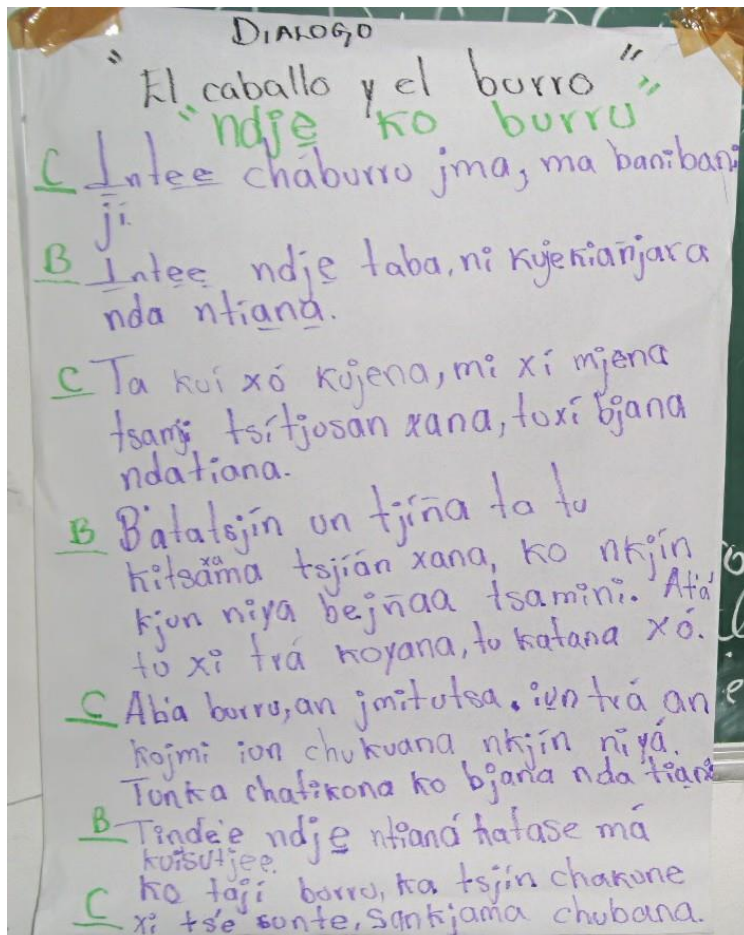 DIALOGO
"El caballo y el burro"
"ndje ko burru"
C Intee cháburro jma, ma banibani
ji.
B Intee ndje taba, ni kyjenianjara
nda ntiana.
C Ta kui xó kujena, mi xí mjena
tsami tsítjosan xana, toxí bjana
ndatiana.
B B'atatsjín un tjíña ta tu
kitsama xa tsjián xana, ko nkjín
kjun niya bejñaa tsamini. Atá
to xi trá koyana, tu katana xó.
C Aba burru, an jmitutsa, iun trá an
kojmi ion chukuana nkjín niyá.
Tonka chatikona ko bjana nda tiana
B Tinde'e ndje ntianá hatase má
kuisutjee.
C ko taji borro, ka tsjín chakone
xi tse sunte, sankjama chubana.